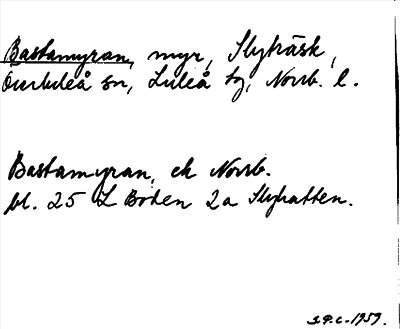 Bastamyran, myr, Slyträsk,
Överluleå sn, Luleå tg, Norrb. l.
Bastamyran, ek Norrb.
bl. 25 L Boden 2a Slyhatten.
S.P.C. 1959.